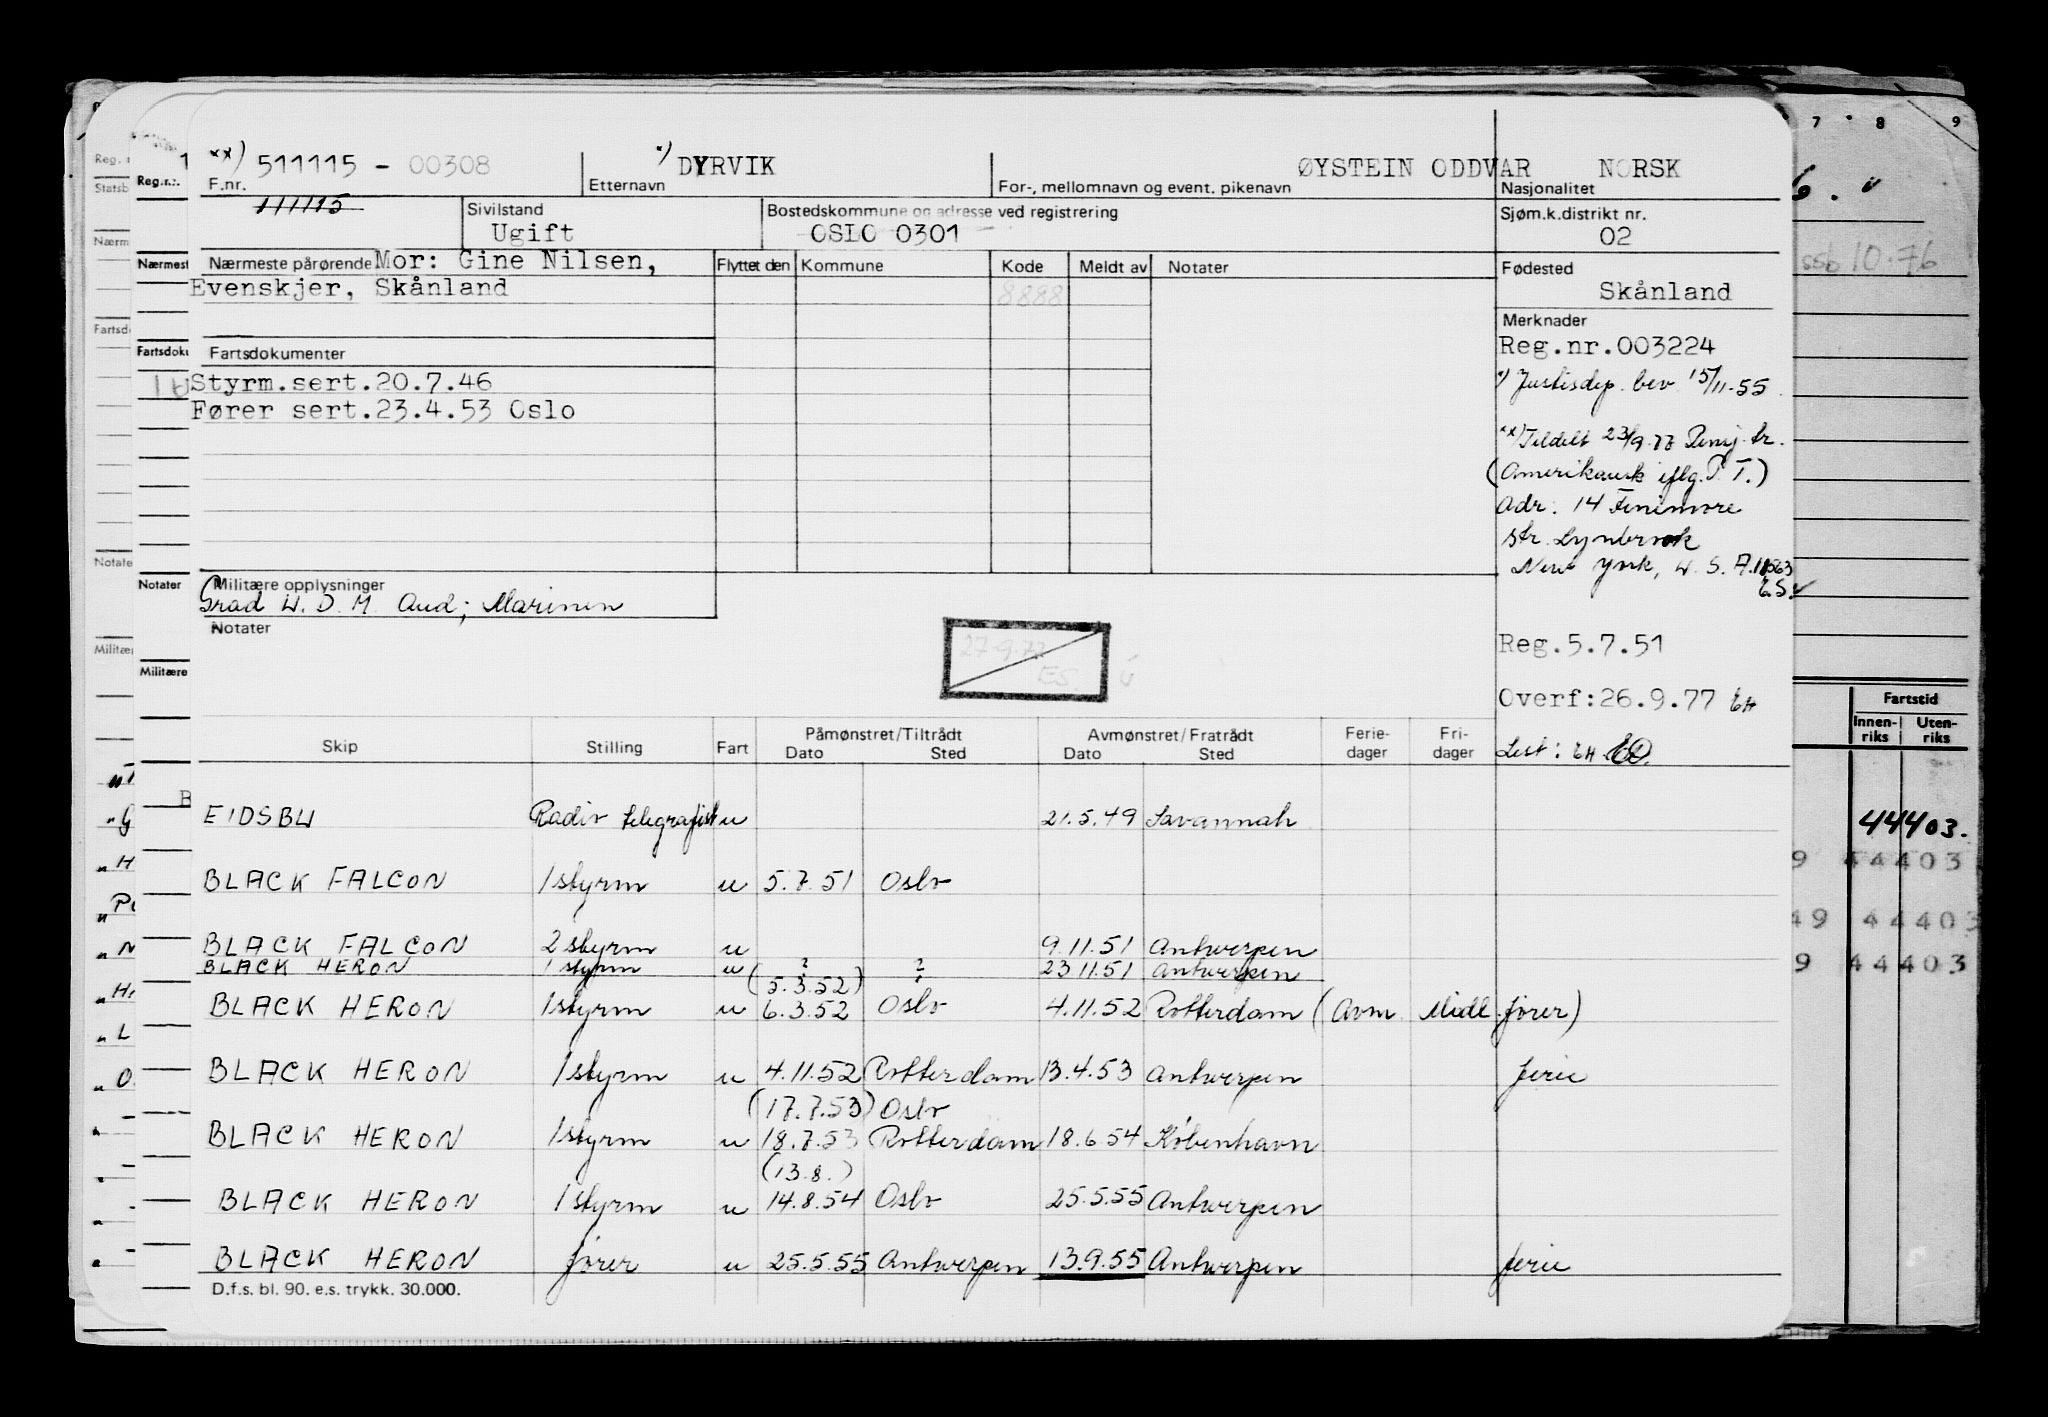 xx) 511115 - 00308
F.nr.
111115
x) DYRVIK
Etternavn
ØYSTEIN ODDVAR
For-, mellomnavn og event. pikenavn
NORSK
Nasjonalitet
Sivilstand
Ugift
Bostedskommune og adresse ved registrering
OSLO 0301
Sjøm.k.distrikt nr.
02
Nærmeste pårørende Mor: Gine Nilsen,
Evenskjer, Skånland
Flyttet den Kommune Kode Meldt av Notater
8888
Fødested
Skånland
Merknader
Reg.nr.003224
x) Justisdep. bev 15/11-55
xx) Tildelt 23/9.77 Pensj. tr.
(Amerikansk iflg. P. T.)
Adr: 14 Fenimore
str. Lynbrook
New York, U. S. A. 11563
Fartsdokumenter
Styrm.sert.20.7.46
Fører sert.23.4.53 Oslo
Militære opplysninger
Grad U. D. M. Aud; Marinen
Notater
27-9-77
ES.
Reg.5.7.51
Overf:26.9.77 EH
Lest: EH
Skip Stilling Fart Påmønstret/Tiltrådt Avmønstret/Fratrådt Ferie- Fri-
Dato Sted Dato Sted dager dager
EIDSBU Radio telegrafist u 21.5.49 Savannah
BLACK FALCON 1 styrm u 5.7.51 Oslo
BLACK FALCON 2 styrm u 9.11.51 Antwerpen
BLACK HERON 1 styrm u ? ? 23.11.51 Antwerpen
(5.3.52)
BLACK HERON 1 styrm u 6.3.52 Oslo 4.11.52 Rotterdam (Avm Midl. fører)
BLACK HERON 1 styrm u 4.11.52 Rotterdam 13.4.53 Antwerpen ferie
(17.7.53) Oslo
BLACK HERON 1 styrm u 18.7.53 Rotterdam 18.6.54 København
(13.8.)
BLACK HERON 1 styrm u 14.8.54 Oslo 25.5.55 Antwerpen
BLACK HERON fører u 25.5.55 Antwerpen 13.9.55 Antwerpen ferie
D.f.s. bl. 90. e.s. trykk. 30.000.
Reg.nr.
Nærmest
Fartsdoku
Notater
Militære
7 8 9
10.76
Fartstid
Innen-
riks
Uten-
riks
44403.
9 44403
49 44403
9 44403